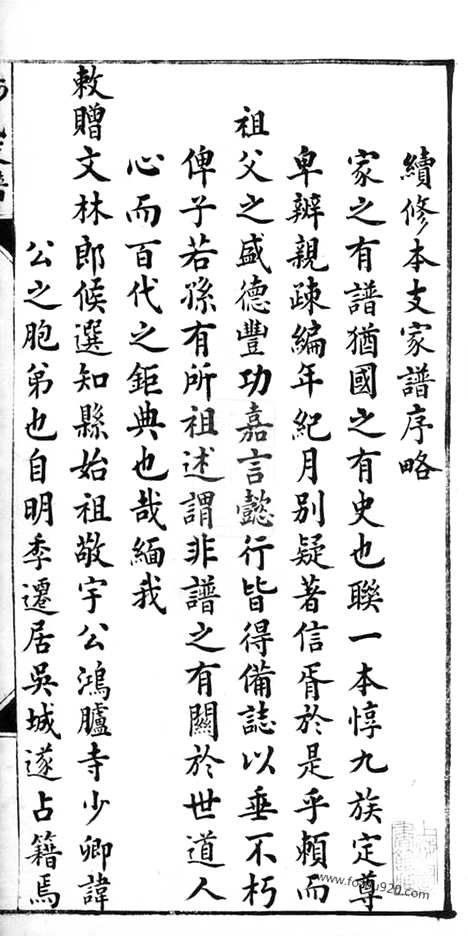 續修本支家譜序略
家之有譜猶國之有史也聯一本惇九族定尊
卑辦親疎編年紀月別疑著信胥於是乎賴而
祖父之盛德豐功嘉言懿行皆得備誌以垂不朽
俾子若孫有所祖述謂非譜之有關於世道人
心而百代之鉅典也哉緬我
敕贈文林郎候選知縣始祖敬宇公鴻臚寺少卿諱
公之胞弟也自明季遷居吳城遂占籍焉